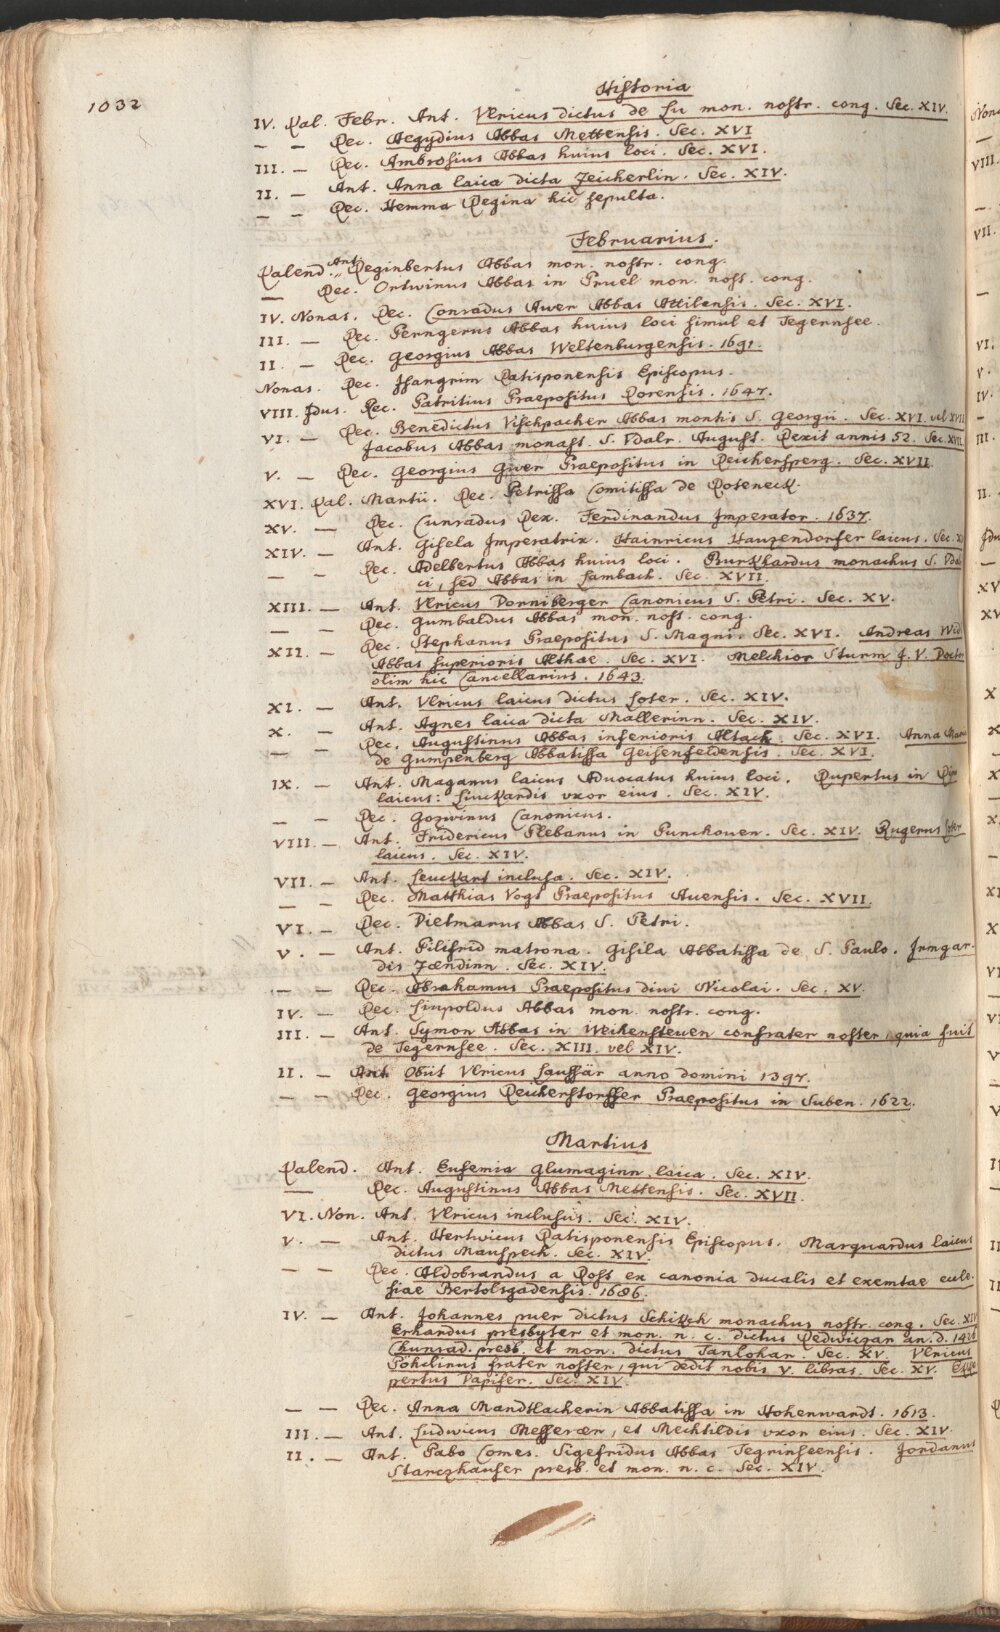 1032
Historia
IV. Kal. Febr. Ant. Vlricus dictus de Lu mon. nostr. cong. Sec. XIV.
— — Rec. Aegydius Abbas Mettensis. Sec. XVI
III. — Rec. Ambrosius Abbas huius loci. Sec. XVI.
II. — Ant. Anna laica dicta Zeicherlin. Sec. XIV.
— — Rec. Hemma Regina hic sepulta.
Februarius.
Kalend. Ant. Reginbertus Abbas mon. nostr. cong.
— „ Rec. Ortwinus Abbas in Pruel mon. nost. cong.
IV. Nonas. Rec. Conradus Awer Abbas Attilensis. Sec. XVI.
III. — Rec. Perngerus Abbas huius loci simul et Tegernsee.
II. — Rec. Georgius Abbas Weltenburgensis. 1691.
Nonas. Rec. Isangrim Ratisponensis Episcopus.
VIII. Idus. Rec. Patritius Praepositus Rorensis. 1647.
VI. — Rec. Benedictus Vischpacher Abbas montis S. Georgii. Sec. XVI. vel XVII
Jacobus Abbas monast. S. Vdalr. August. Rexit annis 52. Sec. XVII.
V. — Rec. Georgius Giver Praepositus in Reichersperg. Sec. XVII.
XVI. Kal. Martii. Rec. Petrissa Comitissa de Roteneck.
XV. — Rec. Cunradus Rex. Ferdinandus Imperator. 1637.
XIV. — Ant. Gisela Imperatrix. Hainricus Hauzendorfer laicus. Sec.
— — Rec. Adelbertus Abbas huius loci. Burkhardus monachus S.
ci, sed Abbas in Lambach. Sec. XVII.
XIII. — Ant. Vlricus Dorniberger Canonicus S. Petri. Sec. XV.
— — Rec. Gumbaldus Abbas mon. nost. cong.
XII. — Rec. Stephanus Praepositus S. Magni. Sec. XVI. Andreas
Abbas superioris Althae. Sec. XVI. Melchior Sturm J. V. Doctor
olim hic Cancellarius. 1643.
XI. — Ant. Vlricus laicus dictus Loter. Sec. XIV.
X. — Ant. Agnes laica dicta Mallerinn. Sec. XIV.
— — Rec. Augustinus Abbas inferioris Altach. Sec. XVI. Anna
de Gumpenberg Abbatissa Geisenfeldensis. Sec. XVI.
IX. — Ant. Maganus laicus Aduocatus huius loci. Rupertus in
laicus: Liuckardis vxor eius. Sec. XIV.
— — Rec. Gozwinus Canonicus.
VIII. — Ant. Fridericus Plebanus in Punchouen. Sec. XIV. Rugerus
laicus. Sec. XIV.
VII. — Ant. Leuckart inclusa. Sec. XIV.
— — Rec. Matthias Vogt Praepositus Auensis. Sec. XVII.
VI. — Rec. Dietmarus Abbas S. Petri.
V. — Ant. Pilifrid matrona. Gisila Abbatissa de S. Paulo. Irmgar-
dis Zændinn. Sec. XIV.
— — Rec. Abrahamus Praepositus diui Nicolai. Sec. XV.
IV. — Rec. Liupoldus Abbas mon. nostr. cong.
III. — Ant. Symon Abbas in Weihensteuen confrater noster, quia fuit
de Tegernsee. Sec. XIII. vel XIV.
II. — Ant. Obiit Vlricus Laussär anno domini 1397.
— — Rec. Georgius Reicherstorffer Praepositus in Suben. 1622.
Martius
Kalend. Ant. Eufemia Glumaginn laica. Sec. XIV.
— Rec. Augustinus Abbas Mettensis. Sec. XVII.
VI. Non. Ant. Vlricus inclusus. Sec. XIV.
V. — Ant. Hertwicus Ratisponensis Episcopus. Marquardus laicus
dictus Mauspeck. Sec. XIV.
— — Rec. Aldobrandus a Ross ex canonia ducalis et exemtae eccle-
siae Bertolsgadensis. 1686.
IV. — Ant. Johannes puer dictus Schikch monachus nostr. cong. Sec. XIV
Erhardus presbyter et mon. n. c. dictus Redwiczar an. d.
Chunrad. presb. et mon. dictus Tanlohar. Sec. XV. Vlricus
Pöhelinus frater noster, qui dedit nobis V. libras. Sec. XV.
pertus Papifer. Sec. XIV.
— — Rec. Anna Mandtlacherin Abbatissa in Hohenwardt. 1613.
III. — Ant. Ludwicus Messerær, et Mechtildis vxor eius. Sec. XIV.
II. — Ant. Pabo Comes. Sigefridus Abbas Tegrinseensis. Jordanus
Starczhauser presb. et mon. n. c. Sec. XIV.